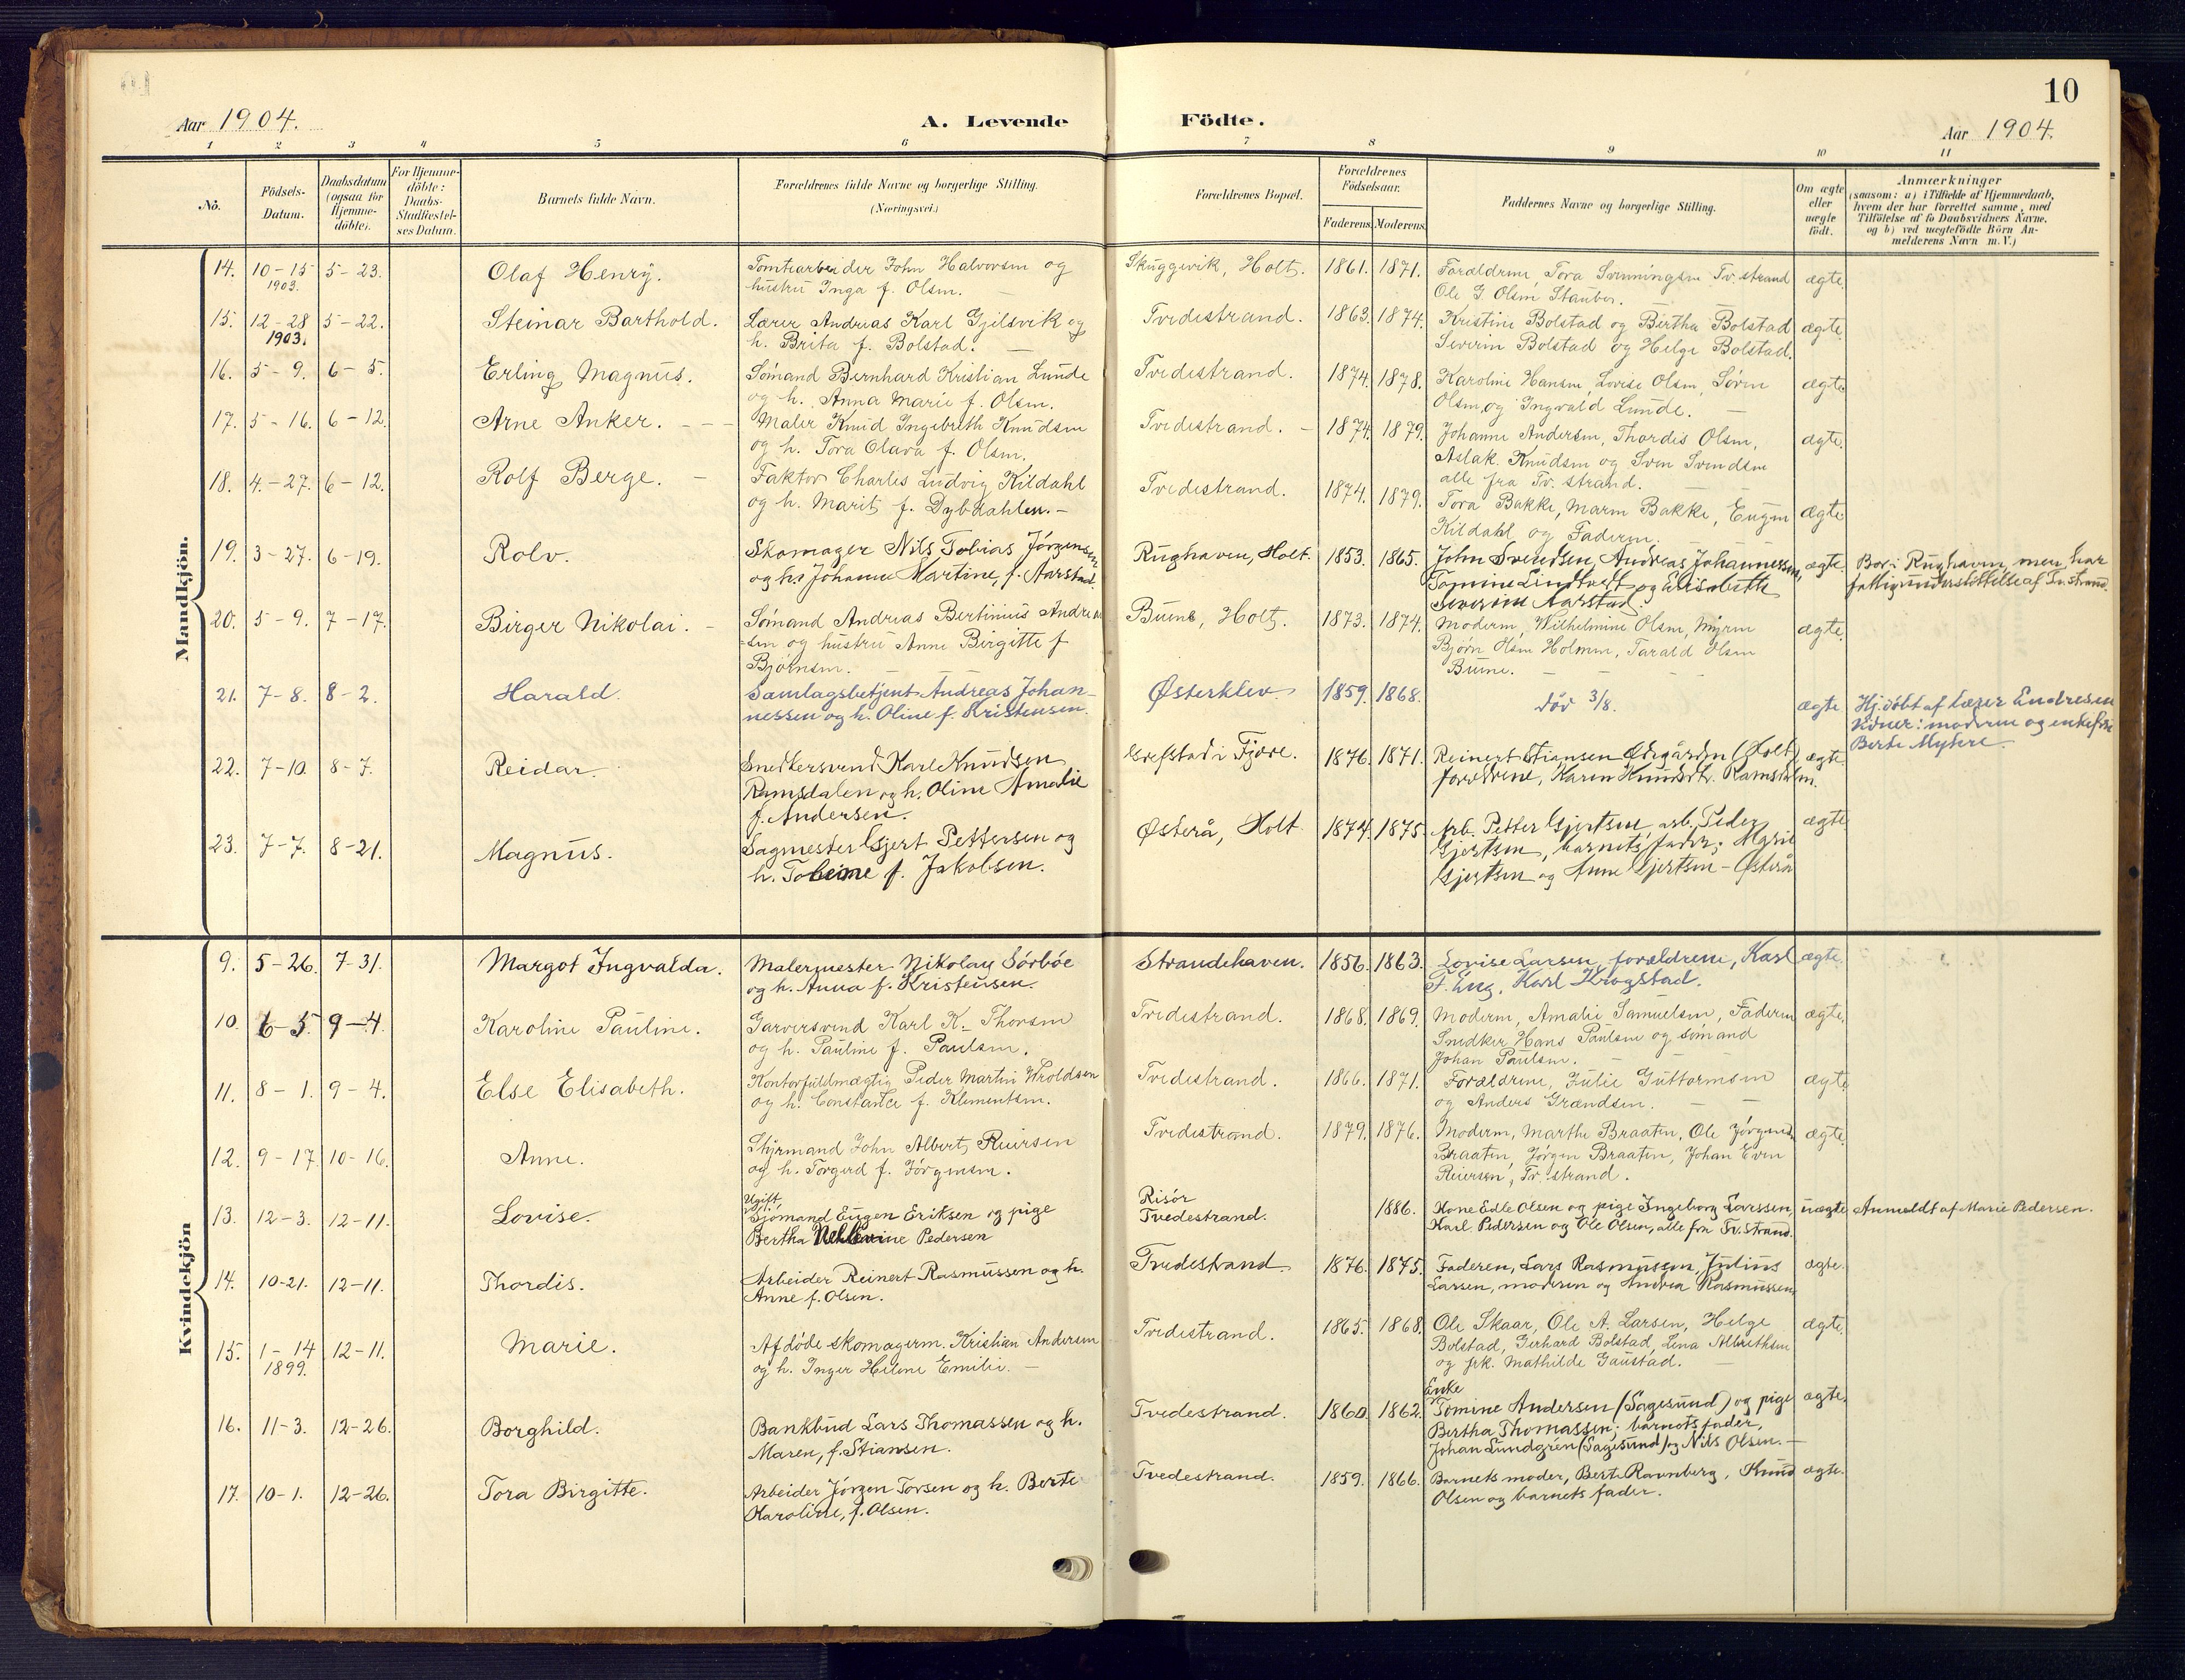 10
Aar 1904.
A. Levende Födte.
Aar 1904.
1 2 3 4 5 6 7 8 9 10 11
No.
Födsels-Datum.
Daabsdatum (ogsaa for Hjemme-döbte).
For Hjemme-döbte: Daabs-Stadfæstel-ses Datum.
Barnets fulde Navn.
Forældrenes fulde Navne og borgerlige Stilling.
(Næringsvei.)
Forældrenes Bopæl.
Forældrenes Födselsaar.
Faderens. Moderens.
Faddernes Navne og borgerlige Stilling.
Om ægte eller uægte födt.
Anmærkninger
(saasom: a) i Tilfælde af Hjemmedaab, hvem der har forrettet samme, med Tilföielse af to Daabsvidners Navne, og b) ved uægtefödte Börn An-melderens Navn m. V.)
Mandkjön.
14. 10-15 1903. 5-23. Olaf Henry. Tomtearbeider John Halvorsen og
hustru Inga f. Olsen. Skuggevik, Holt. 1861. 1871. Forældrene, Tora Svenningsen Tv.strand
Ole G. Olsen Stauber. ægte.
15. 12-28 1903. 5-22. Steinar Barthold. Lærer Andreas Karl Gjilsvik og
h. Brita f. Bolstad. Tvedestrand. 1863. 1874. Kristine Bolstad og Bertha Bolstad
Severin Bolstad og Helge Bolstad. ægte.
16. 5-9. 6-5. Erling Magnus. Sömand Bernhard Kristian Lunde
og h. Anna Marie f. Olsen. Tvedestrand. 1874. 1878. Karoline Hansen, Lovise Olsen, Sören
Olsen og Ingvald Lunde. ægte.
17. 5-16. 6-12. Arne Anker. Maler Knud Ingebreth Knudsen
og h. Tora Olava f. Olsen. Tvedestrand. 1874. 1879. Johanne Andersen, Thordis Olsen,
Aslak Knudsen og Sven Svendsen
alle fra Tv.strand. ægte.
18. 4-27. 6-12. Rolf Berge. Faktor Charles Ludvig Kildahl
og h. Marit f. Dybdahlen. Tvedestrand. 1874. 1879. Tora Bakke, Maren Bakke, Eugen
Kildahl og Faderen. ægte.
19. 3-27. 6-19. Rolv. Skomager Nils Tobias Jörgensen
og h. Johanne Martine, f. Aarstad. Rughaven, Holt. 1853. 1865. John Svendsen, Andreas Johannessen,
Tomine Lindtveit og Elisabeth
Severine Aarstad. ægte. Bor i Rughaven, men har
fattigunderstöttelse af Tv.strand.
20. 5-9. 7-17. Birger Nikolai. Sömand Andreas Bertinius Andrea
sen og hustru Anne Birgitte f
Björnsen. Buene, Holt. 1873. 1874. Moderen, Wilhelmine Olsen, Myren
Björn Olsen Holmen, Tarald Olsen
Buene. ægte.
21. 7-8. 8-2. Harald. Samlagsbetjent Andreas Johan-
nessen og h. Oline f. Kristensen. Østerklev 1859. 1868. död 3/8. ægte Hj.döbt af lærer Endresen
Vidner: moderen og enkefru
Berte Myhre.
22. 7-10. 8-7. Reidar. Snedkersvend Karl Knudsen
Ramsdalen og h. Oline Amalie
f. Andersen. Grefstad i Fjære. 1876. 1871. Reinert Stiansen Ødegården (Holt)
forældrene, Karen Knudsdtr. Ramsdalen. ægte.
23. 7-7. 8-21. Magnus. Sagmester Gjert Pettersen og
h. f. Jakobsen. Østerå, Holt. 1874. 1875. Arb. Petter Gjertsen, arb. Peder
Gjertsen, barnets fader; Marie
Gjertsen og Anne Gjertsen - Østerå ægte
Kvindekjön
9. 5-26. 7-31. Margot Ingvalda. Malermester Nikolay Sörböe
og h. Anna f. Kristensen. Strandehaven. 1856. 1863. Lovise Larsen, forældrene, Karl
F. Eng, Karl Krogstad. ægte.
10. 6-5. 9-4. Karoline Pauline. Garversvend Karl K. Thorsen
og h. Pauline f. Paulsen. Tvedestrand. 1868. 1869. Moderen, Amalie Samuelsen, Faderen
Snedker Hans Paulsen og sömand
Johan Paulsen. ægte.
11. 8-1. 9-4. Else Elisabeth. Kontorfuldmægtig Peder Martin Wroldsen
og h. Constance f. Klementsen. Tvedestrand. 1866. 1871. Forældrene, Julie Guttormsen
og Anders Grændsen. ægte.
12. 9-17. 10-16. Anne. Styrmand John Albert Reiersen
og h. Torgerd f. Jörgensen. Tvedestrand. 1879. 1876. Moderen, Marthe Braaten, Ole Jörgensen
Braaten, Jörgen Braaten, Johan Even
Reiersen, Tv.strand. ægte.
13. 12-3. 12-11. Lovise. Ugift
Sjömand Eugen Eriksen og pige
Bertha Pedersen Risör
Tvedestrand. 1886. Kone Edle Olsen og pige Ingeborg Larssen,
Karl Pedersen og Ole Olsen, alle fra Tv.strand. uægte Anmeldt af Marie Pedersen.
14. 10-21. 12-11. Thordis. Arbeider Reinert Rasmussen og h.
Anne f. Olsen. Tvedestrand 1876. 1875. Faderen, Lars Rasmussen, Julius
Larsen, moderen og Andrea Rasmussen ægte.
15. 1-14 1899. 12-11. Marie. Afdöde skomagerm. Kristian Andersen
og h. Inger Helene Emilie. Tvedestrand. 1865. 1868. Ole Skaar, Ole A. Larsen, Helge
Bolstad, Gerhard Bolstad, Lena Albrethsen
og frk. Mathilde Gaustad. ægte.
16. 11-3. 12-26. Borghild. Bankbud Lars Thomassen og h.
Maren, f. Stiansen. Tvedestrand. 1860. 1862. Enke
Tomine Andersen (Sagesund) og pige
Bertha Thomassen; barnets fader,
Johan Lundgren (Sagesund) og Nils Olsen. ægte.
17. 10-1. 12-26. Tora Birgitte. Arbeider Jörgen Torsen og h. Berte
Karoline, f. Olsen. Tvedestrand. 1859. 1866. Barnets moder, Berte Ravnberg, Knud
Olsen og barnets fader. ægte.